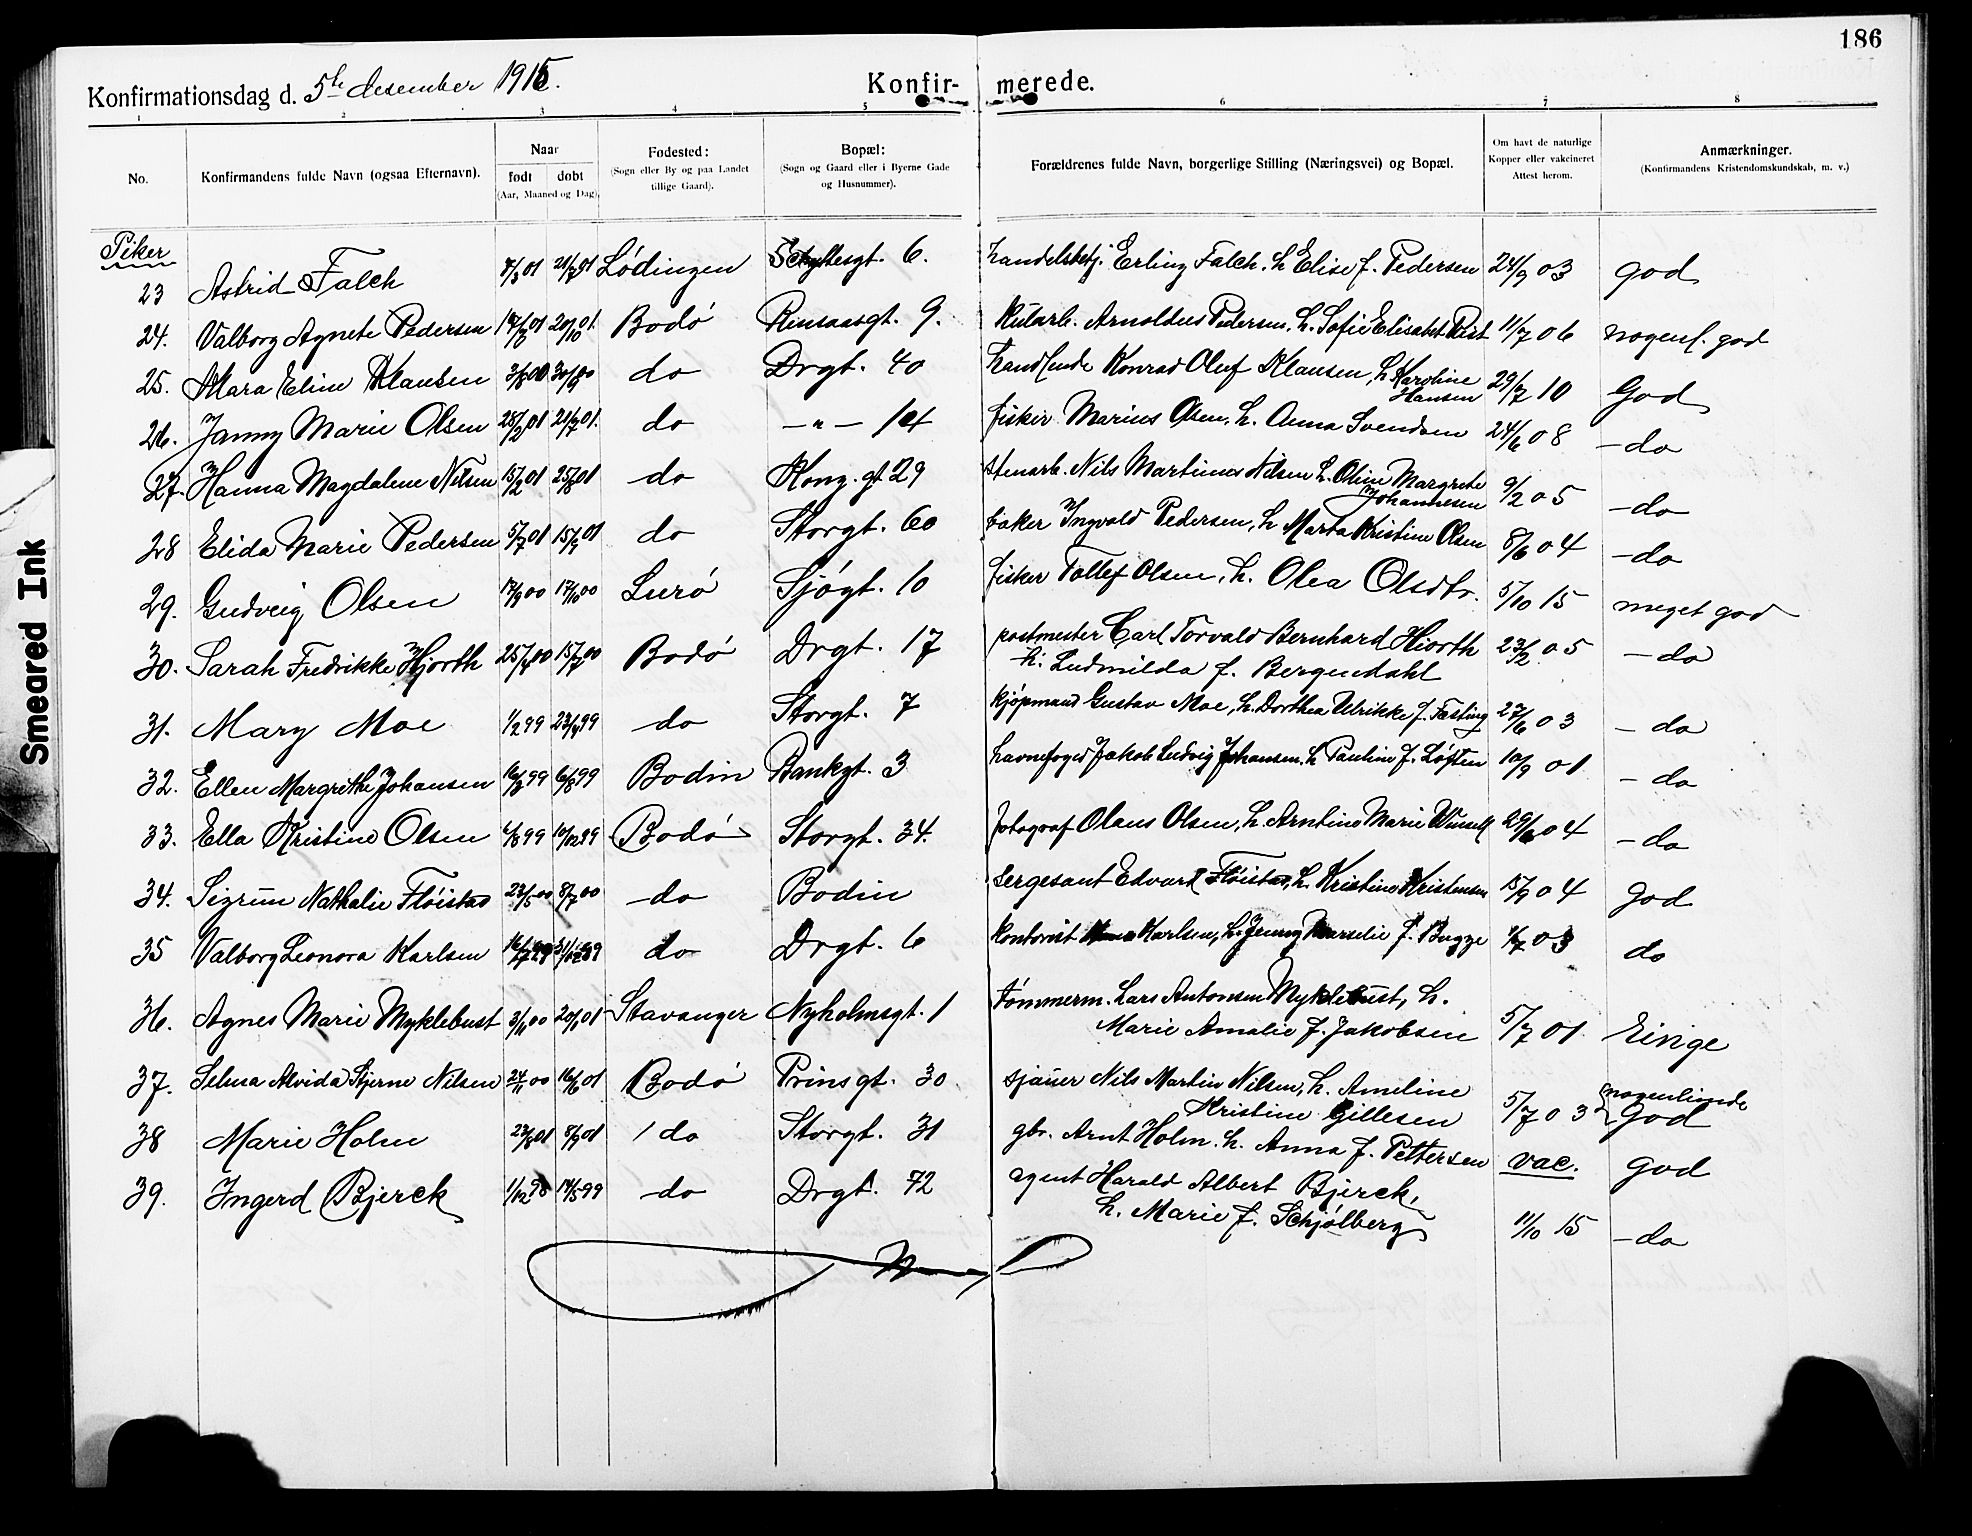 186
Konfirmationsdag d. 5te desember 1915. Konfirmerede.
1 2 3 4 5 6 7 8
No. Konfirmandens fulde Navn (ogsaa Efternavn). Naar født døbt (Aar, Maaned og Dag). Fødested: (Sogn eller By og paa Landet tillige Gaard). Bopæl: (Sogn og Gaard eller i Byerne Gade og Husnummer). Forældrenes fulde Navn, borgerlige Stilling (Næringsvei) og Bopæl. Om havt de naturlige Kopper eller vakcineret Attest herom. Anmærkninger. (Konfirmandens Kristendomskundskab, m. v.)
Piker
23 Astrid Falch Lødingen 6. handelsbetj. Erling Falch. h Elise f. Pedersen 24/9 03 god
24. Valborg Agnete Pedersen Bodó Rensaasgt. 9. Kularb. Arnoldus Pedersen, h. Sofie Elisabet Rist 11/7 06 nogenl. god
25. Mara Eline Klausen do Drgt. 40 handlende Konrad Oluf Klausen, h Karoline Hansen 29/7 10 God
26. Janny Marie Olsen do -"- 14 fisker Marius Olsen, h. Anna Svendsen 24/6 08 - do
27. Hanna Magdalene Nilsen 15/2 01 25/8 01 do Kong. gt 29 stenarb. Nils Martinus Nilsen h. Oline Margrete Johannesen 9/2 05 - do
28 Elida Marie Pedersen 5/7 01 15/9 01 do Storgt. 60 fisker Ingvald Pedersen, h Marta Kristine Olsen 8/6 04 - do
29. Gudveig Olsen 17/9 00 17/10 00 Luró Sjógt. 10 fisker Tollef Olsen, h. Olea Olsdtr. 5/10 15 meget god
30. Sarah Fredrikke Hjorth Bodó Drgt. 17 postmester Carl Torvald Bernhard Hiorth h. Ludmilda f. Bergendahl 23/2 05 - do
31. Mary Moe 1/2 99 23/4 99 do Storgt. 7 kjøpmand Gustav Moe, h. Dorthea Ulrikke f. Fæsting 27/6 03 - do
32. Ellen Margrethe Johansen 16/3 99 6/8 99 Bodin Bankgt. 3 havnefoged Jakob Ludvig Johansen. h Pauline f. Løften 10/9 01 - do
33. Ella Kristine Olsen 10/12 99 Bodó Storgt. 34. fotograf Olaus Olsen, h. Arntine Marie 29/6 04 - do
34. Sigrun Nathalie Flöistad 23/5 00 8/7 00 - do Bodin sergeant Edvard Flöistad, h. Kristine Kristensen 15/9 04 God
35 Valborg Leonora Karlsen do Drgt. 6 kontorist Karlsen, h. Jenny Marselie f. Bugge 03 do
36. Agnes Marie Myklebust 3/11 00 20/1 01 Stavanger Nyholmsgt. 1 tómmerm. Lars Antonsen Myklebust, h. Marie Amalie f. Jakobsen 5/7 01 Ringe
37. Selma Alvida Stjerne Nilsen 24/11 00 16/6 01 Bodó Prinsgt. 30 sjauer Nils Martin Nilsen, h. Ameline Kristine Gillesen 5/7 03 nogenlunde God
38 Marie Holm do Storgt. 31 gbr. Arnt Holm. h. Anna f. Pettersen vac. god
39. Ingerd Bjerck 1/12 98 14/5 99 - do Drgt. 72 agent Harald Albert Bjerck, h. Marie f. Schjólberg 11/10 15 - do
Smeared Ink